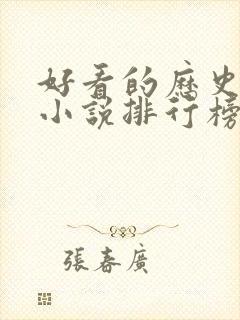 好看的歷史
小說排行榜
張春廣